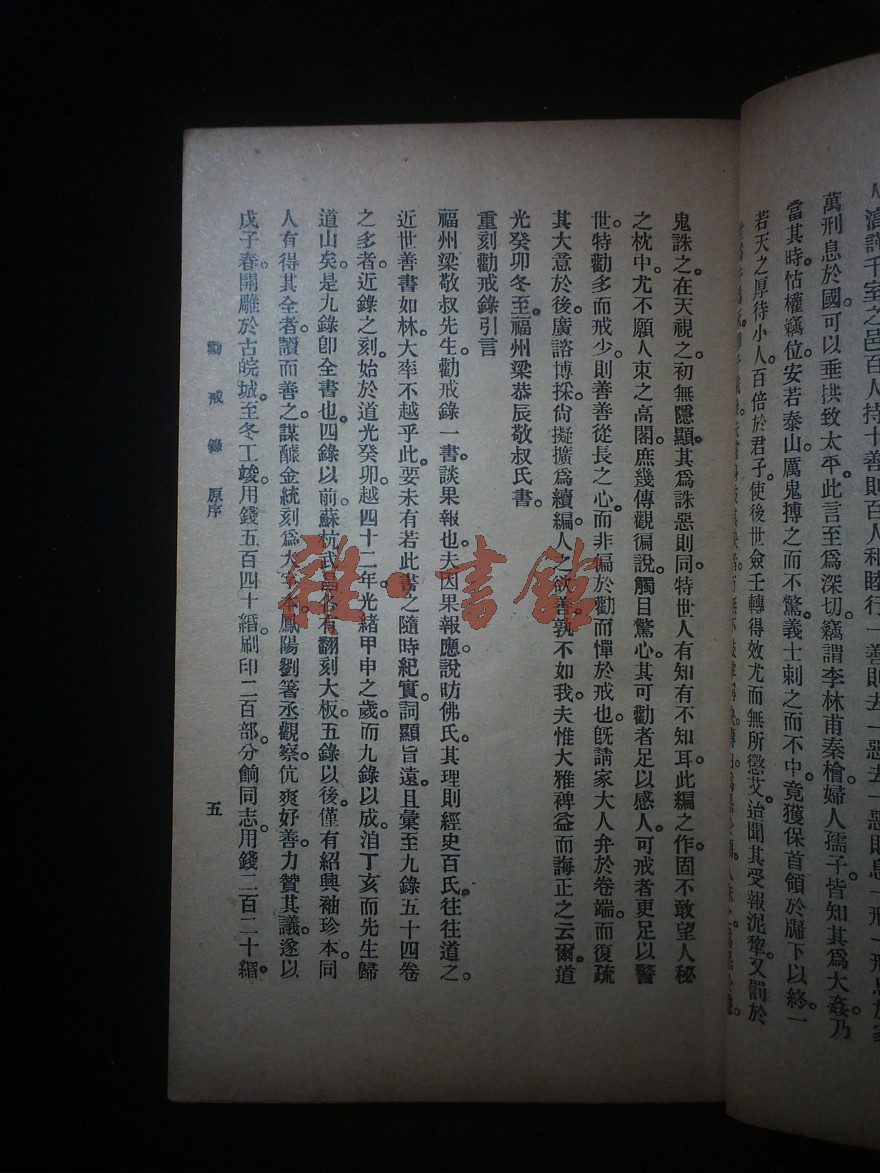 濟濟千室之邑百人持十善則百人和睦行一善則去一惡去一惡則息一刑一刑息於家
萬刑息於國可以垂拱致太平。此言至爲深切。竊謂李林甫秦檜婦人孺子皆知其爲大姦。乃
當其時怙權竊位安若泰山厲鬼搏之而不驚。義士刺之而不中。竟獲保首領於牖下以終。一
若天之厚待小人百倍於君子。使後世僉壬轉得效尤而無所懲艾。迨聞其受報泥犂。又罰於
鬼誅之。在天視之初無隱顯。其爲誅惡則同。特世人有知有不知耳。此編之作。固不敢望人秘
之枕中。尤不願人束之高閣。庶幾傳觀徧說。觸目驚心。其可勸者足以感人。可戒者更足以警
世。特勸多而戒少。則善善從長之心。而非徧於勸而憚於戒也。旣請家大人弁於卷端。而復疏
其大意於後。廣諮博採。尙擬擴爲續編。人之欲善。孰不如我。夫惟大雅裨益而誨正之云爾。道
光癸卯冬至。福州梁恭辰敬叔氏書。
重刻勸戒錄引言
福州梁敬叔先生。勸戒錄一書。談果報也。夫因果報應說昉佛氏。其理則經史百氏。往往道之。
近世善書如林。大率不越乎此。要未有若此書之隨時紀實。詞顯旨遠。且彙至九錄五十四卷
之多者。近錄之刻。始於道光癸卯。越四十二年。光緒甲申之歲。而九錄以成。洎丁亥而先生歸
道山矣。是九錄卽全書也。四錄以前。蘇杭武昌各有翻刻大板。五錄以後。僅有紹興袖珍本。同
人有得其全者。讀而善之。謀醵金統刻爲大字本。鳳陽劉箸丞觀察。伉爽好善。力贊其議。遂以
戊子春。開雕於古皖城。至冬工竣。用錢五百四十緡。刷印二百部。分餉同志。用錢二百二十緡。
勸戒錄 原序
五
雜·書館